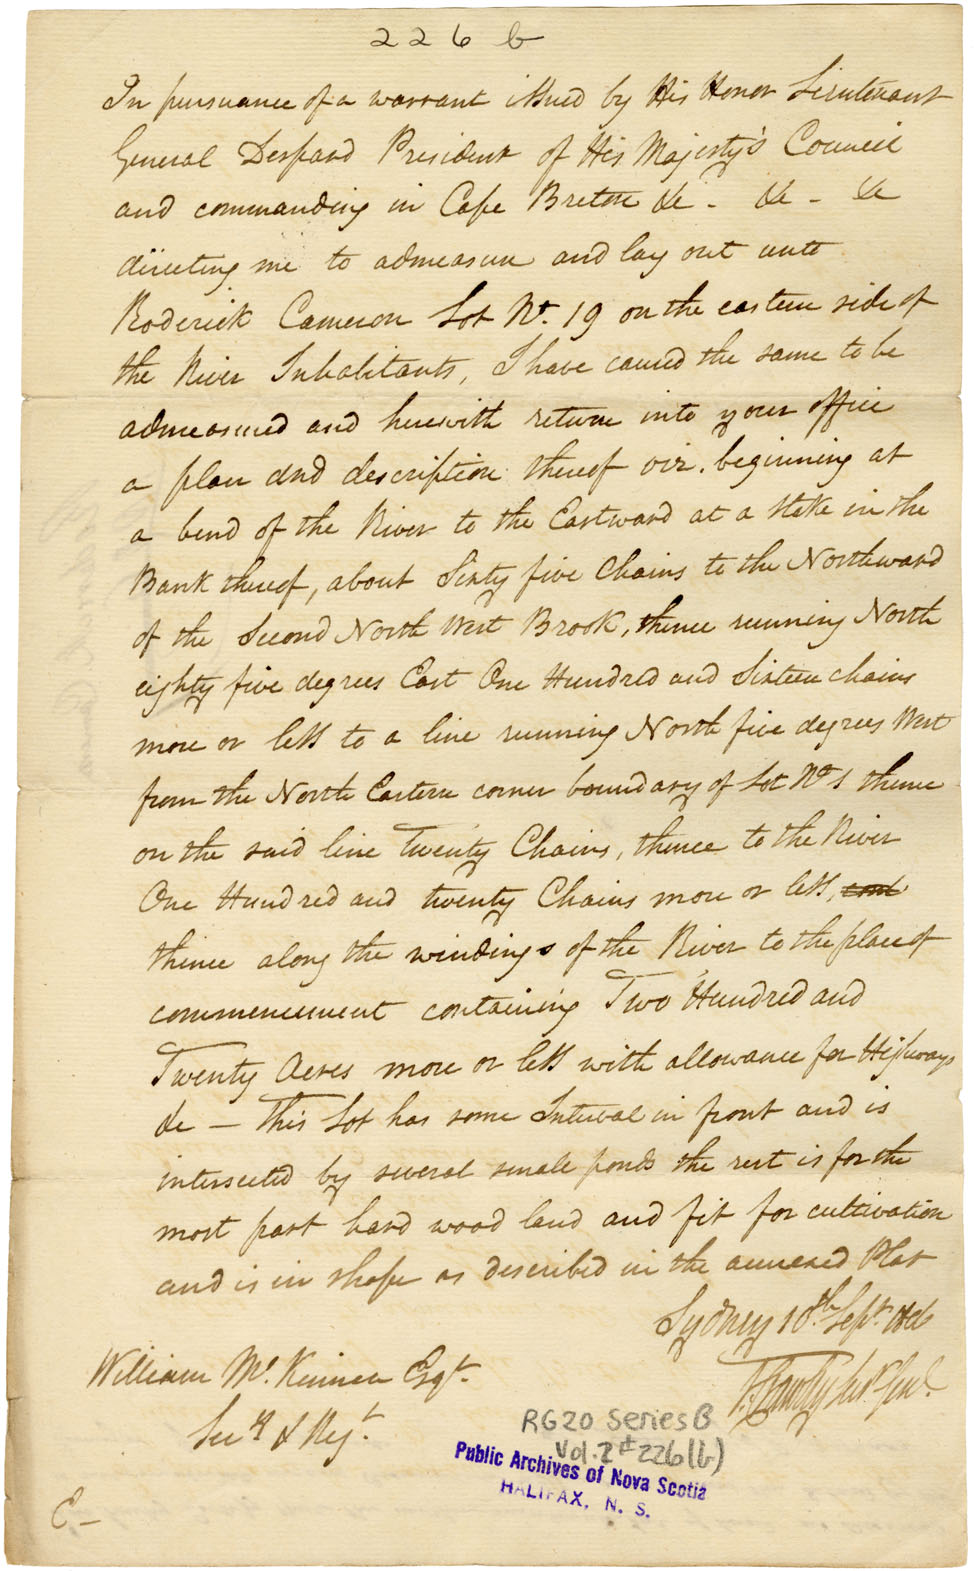 226 b
In pursuance of a warrant issued by His Honor Lieutenant
General Despard President of His Majesty's Council
and commanding in Cape Breton &c - &c - &c
directing me to admeasure and lay out unto
Roderick Cameron Lot No. 19 on the eastern side of
the River Inhabitants, I have caused the same to be
admeasured and herewith return into your office
a plan and description thereof viz. beginning at
a bend of the River to the Eastward at a stake in the
Bank thereof, about Sixty five Chains to the Northward
of the Second North West Brook, thence running North
eighty five degrees East One Hundred and Sixteen chains
more or less to a line running North five degrees West
from the North Eastern corner boundary of Lot No 1 thence
on the said line Twenty Chains, thence to the River
One Hundred and twenty Chains more or less,
thence along the windings of the River to the place of
commencement containing Two Hundred and
Twenty Acres more or less with allowance for Highways
&c — This Lot has some Interval in front and is
intersected by several small ponds the rest is for the
most part hard wood land and fit for cultivation
and is in shape as described in the annexed Plat
Sydney 10th Sept.
William Mc. Kinnen Esqr.
Secy & Regr.
RG20 Series B
Vol. 2 #226(b)
Public Archives of Nova Scotia
HALIFAX, N. S.